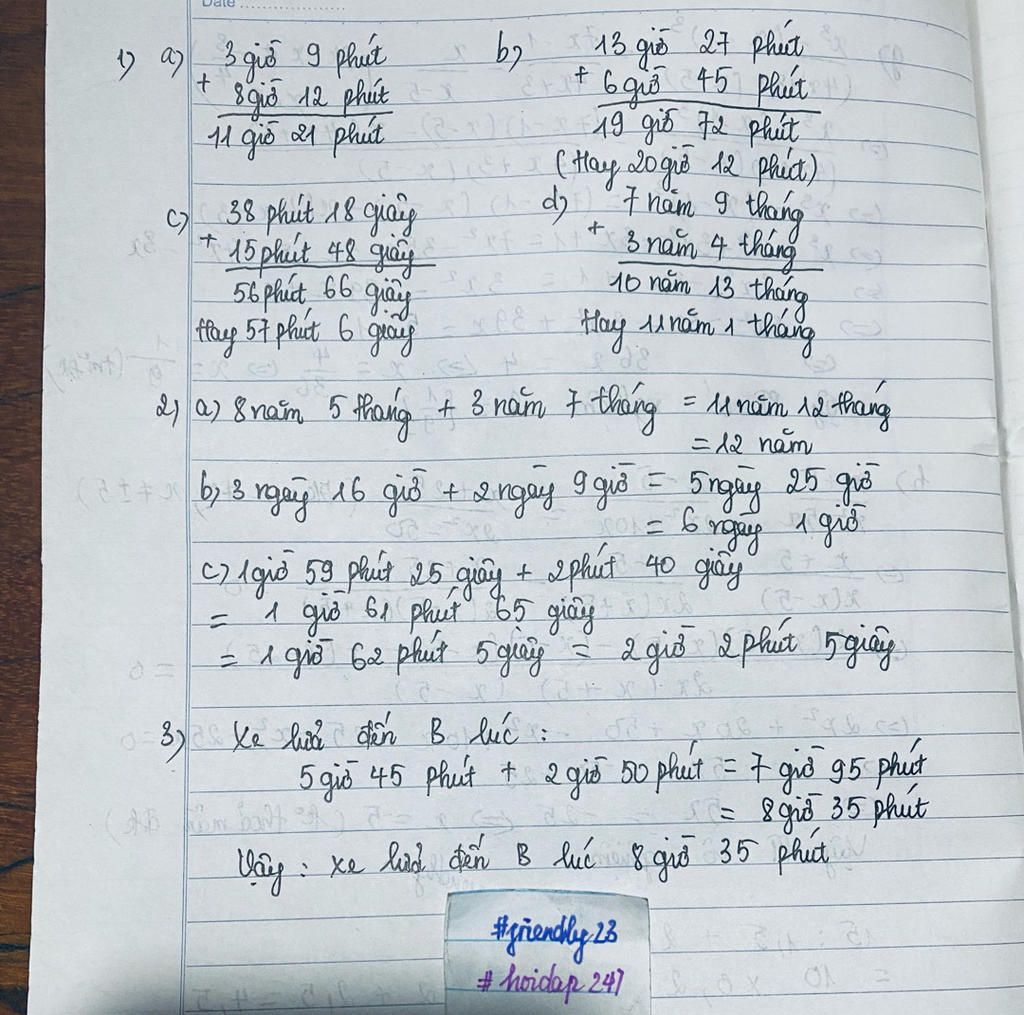 Date
1) a) 3 giờ 9 phút
+ 8 giờ 12 phút
11 giờ 21 phút
b) 13 giờ 27 phút
+ 6 giờ 45 phút
19 giờ 72 phút
(Hay 20 giờ 12 phút)
c) 38 phút 18 giây
+ 15 phút 48 giây
56 phút 66 giây
Hay 57 phút 6 giây
d) 7 năm 9 tháng
+ 3 năm 4 tháng
10 năm 13 tháng
Hay 11 năm 1 tháng
2) a) 8 năm 5 tháng + 3 năm 7 tháng = 11 năm 12 tháng
= 12 năm
b) 3 ngày 16 giờ + 2 ngày 9 giờ = 5 ngày 25 giờ
= 6 ngày 1 giờ
c) 1 giờ 59 phút 25 giây + 2 phút 40 giây
= 1 giờ 61 phút 65 giây
= 1 giờ 62 phút 5 giây = 2 giờ 2 phút 5 giây
3) Xe lửa đến B lúc :
5 giờ 45 phút + 2 giờ 50 phút = 7 giờ 95 phút
= 8 giờ 35 phút
Vậy : xe lửa đến B lúc 8 giờ 35 phút
#friendly23
# hoidap 247